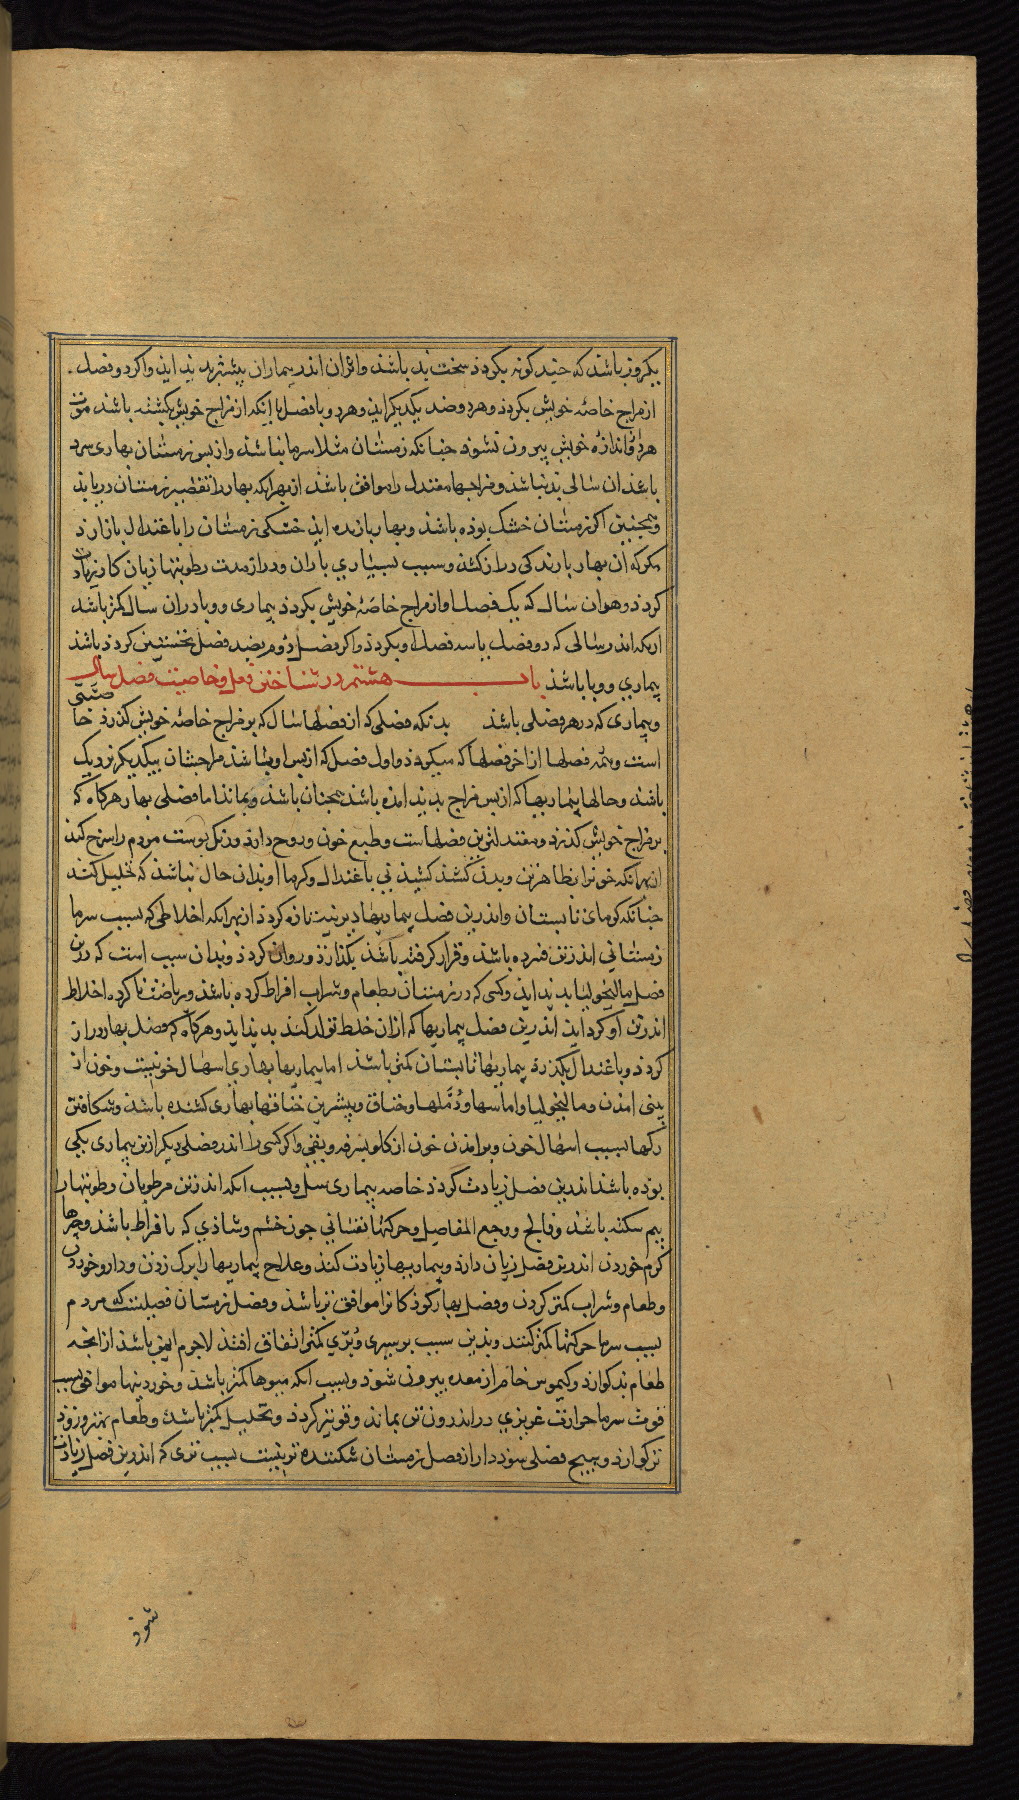 یکروز باشد که چند کونه بکردد سخت بد باشد واثران اندر بیماران بیشتر پدید اید واکر دو فصل
از مزاج خاصه خویش بکردد وهر دو ضد یکدیکر اید وهر دو با فصل با انکه از مزاج خویش کشته باشد
هر دو از اندازه خویش بیرون نشود چنانکه زمستان مثلا سرما نباشد واز پس زمستان بهاری سرد
باشد ان سالی بد نباشد ومزاجها معتدل را موافق باشد از بهر انکه بهار را تقطیر زمستان دریابد
وهمچنین اکر زمستان خشک بوده باشد وبهار بارنده اید خشکی زمستان را باعتدال باز ارد
مکر که ان بهار بارندکی دراز کشد وسبب بسیاری باران ودراز مدت رطوبتها زیان کار
کردد وهوا ان سال که یک فصل او از مزاج خاصه خویش بکردد بیماری ووبا در ان سال کمتر باشد
از انکه اندر سالی که دو فصل یا سه فصل او بکردد واکر فصل دوم بضد فصل نخستین کردد باشد
بیماری ووبا باشد باب هشتم در شناختن فعل وخاصیت فصل سال
وبیماری که در هر فصلی باشد بدانکه فصلی که از فصلها سال که بر مزاج خاصه خویش کذرد خاصیتی
است وهمه فصلها از اخر فصلها که میکردد واول فصل که از پس او باشد مزاجشان بیکدیکر نزدیک
باشد وحالها بیماریها که از پس مزاج پدید امده باشد همچنان باشد وبماند اما فصلی بهار هرکاه که
بر مزاج خویش کذرد ومعتدلترین فصلهاست وطبع خون وروح دارد ورنک پوست مردم را سرخ کند
از بهر انکه خونرا بظاهر تن وبدن کشد کشیدنی باعتدال وکرما او بدان حال نباشد که تحلیل کند
چنانکه کرمای تابستان واندرین فصل بیماریهاء دیرینه تازه کردد از بهر انکه اخلاطی که بسبب سرما
زمستانی اندر تن فسرده باشد وقرار کرفته باشد بکدازد وروان کردد وبدان سبب است که درین
فصل مالیخولیا پدید اید وکسی که در زمستان بطعام وشراب افراط کرده باشد وریاضت ناکرده اخلاط
اندر تن او کرد اید اندرین فصل بیماریها که از ان خلط تولد کند پدید اید وهرکاه که فصل بهار دراز
کردد وباعتدال بکذرد بیماریها تابستان کمتر باشد اما بیماریها بهاری اسهال خونیست وخون از
بینی امدن ومالیخولیا واماسها ودملها وخناق وبیشترین خناقها بهاری کشنده باشد وشکافتن
رکها بسبب اسهال خون وبرامدن خون از کلو بسرفه وبقی واکر کسی را اندر فصلی دیکر ازین بیماری یکی
بوده باشد اندرین فصل زیادت کردد خاصه بیماری سل وبسبب انکه اندر تن مرطوبان رطوبتها را
بیم سکته باشد وفالج ووجع المفاصل وحرکتها نفسانی چون خشم وشادی که بافراط باشد وچیزها
کرم خوردن اندرین فصل زیان دارد وبیماریها زیادت کند وعلاج بیماریها را برک زدن ودارو خوردن
وطعام وشراب کمتر کردن وفصل بهار کودکانرا موافق تر باشد وفصل زمستان فصلیست که مردم
بسبب سرما حرکتها کمتر کنند وبدین سبب برسیری وپری کمتر اتفاق افتد لاجرم ایمن باشد از انچه
طعام بد کوارد وکیموس خام از معده بیرون شود وبسبب انکه میوها کمتر باشد وخوردنیها موافق بسبب
قوت سرما حرارت غریزی در اندرون تن بماند وقوی‌تر کردد وتحلیل کمتر باشد وطعام بهتر وزود
تر کوارد وهیچ فصلی سودا را از فصل زمستان شکننده تر نیست بسبب تری که اندرین فصل زیادت
شود